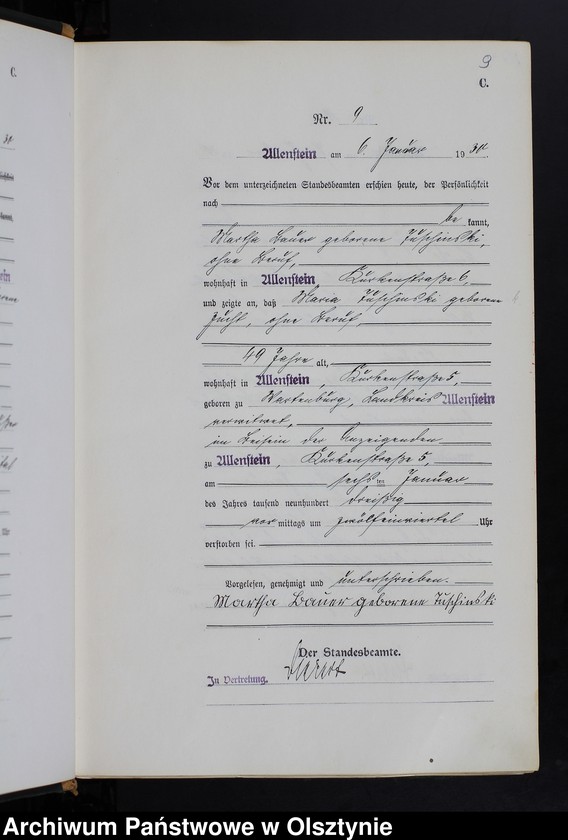 9
C.
Nr. 9
Allenstein am 6. Januar 1930.
Vor dem unterzeichneten Standesbeamten erschien heute, der Persönlichkeit
nach
be kannt,
Martha Bauer geborene Tuschinski,
ohne Beruf,
wohnhaft in Allenstein, Kurkenstraße 6,
und zeigte an, daß Maria Tuschinski geborene
ohne Beruf,
49 Jahre alt,
wohnhaft in Allenstein, Kurkenstraße 5,
geboren zu Wartenburg, Landkreis Allenstein
verwitwet,
im Beisein der Anzeigenden
zu Allenstein, Kurkenstraße 5,
am sechsten Januar
des Jahres tausend neunhundert dreißig
vor mittags um zwölfeinviertel Uhr
verstorben sei.
Vorgelesen, genehmigt und unterschrieben.
Martha Bauer geborene Tuschinski
Der Standesbeamte.
In Vertretung.
C.
Archiwum Państwowe w Olsztynie